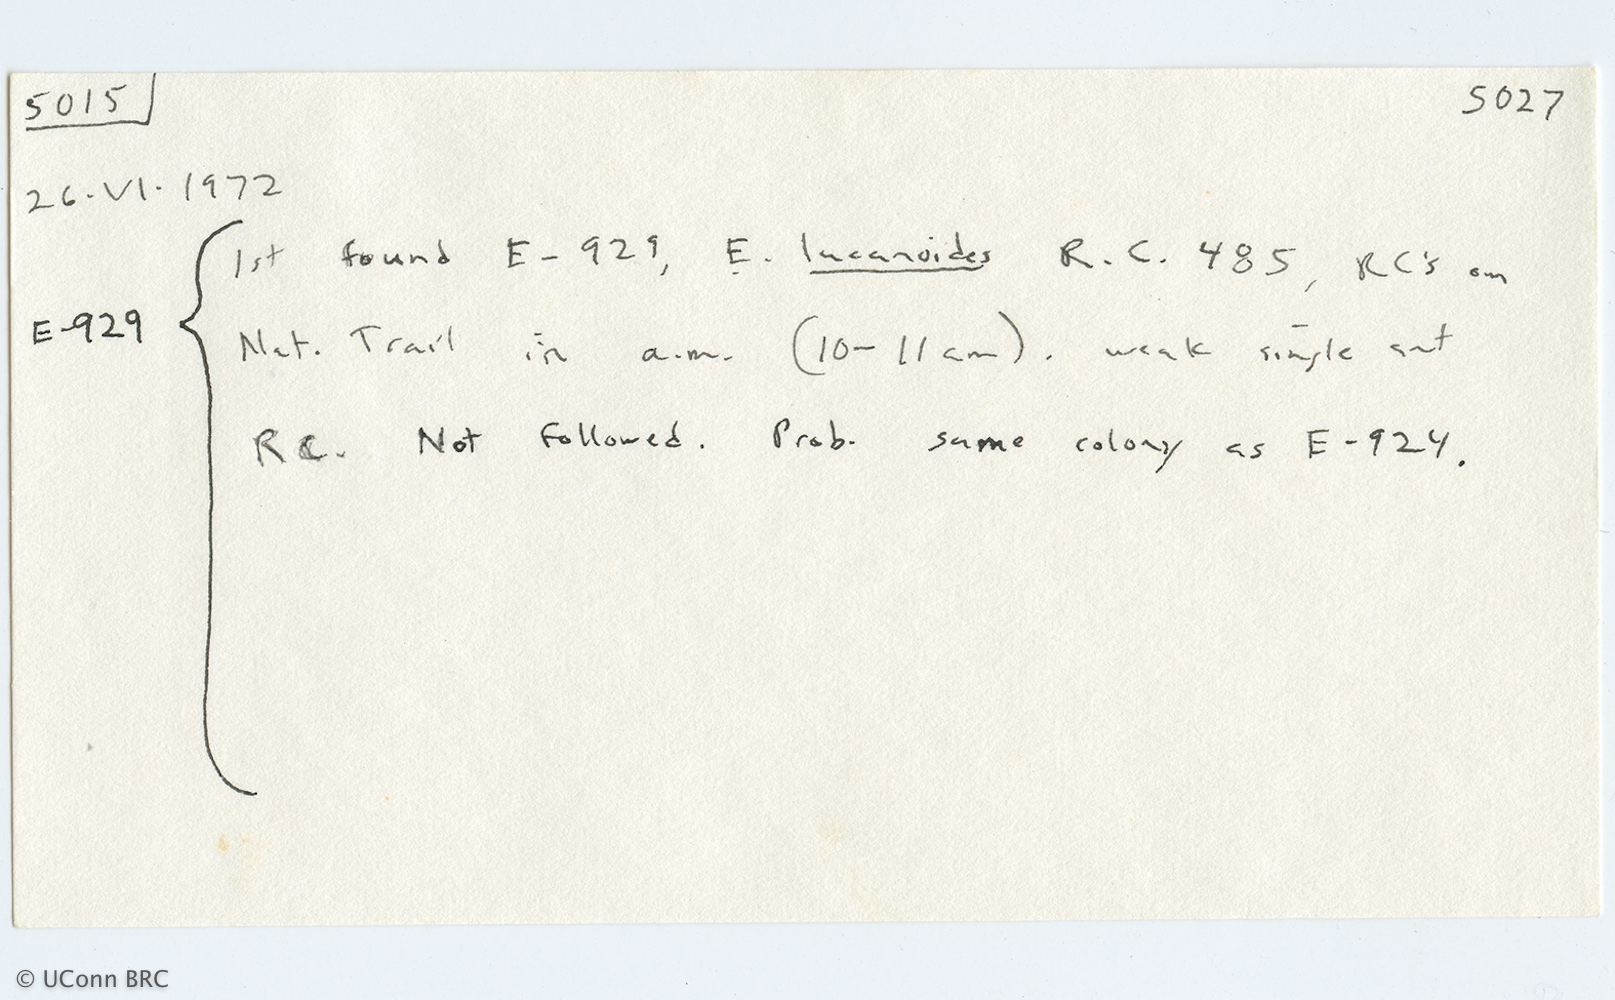 5015 5027
26.VI.1972
1st found E-929, E. lucanoides R.C. 485, RC's on
E-929
Nat. Trail in a.m. (10-11am). weak single ant
RC. Not followed. Prob. same colony as E-924.
© UConn BRC